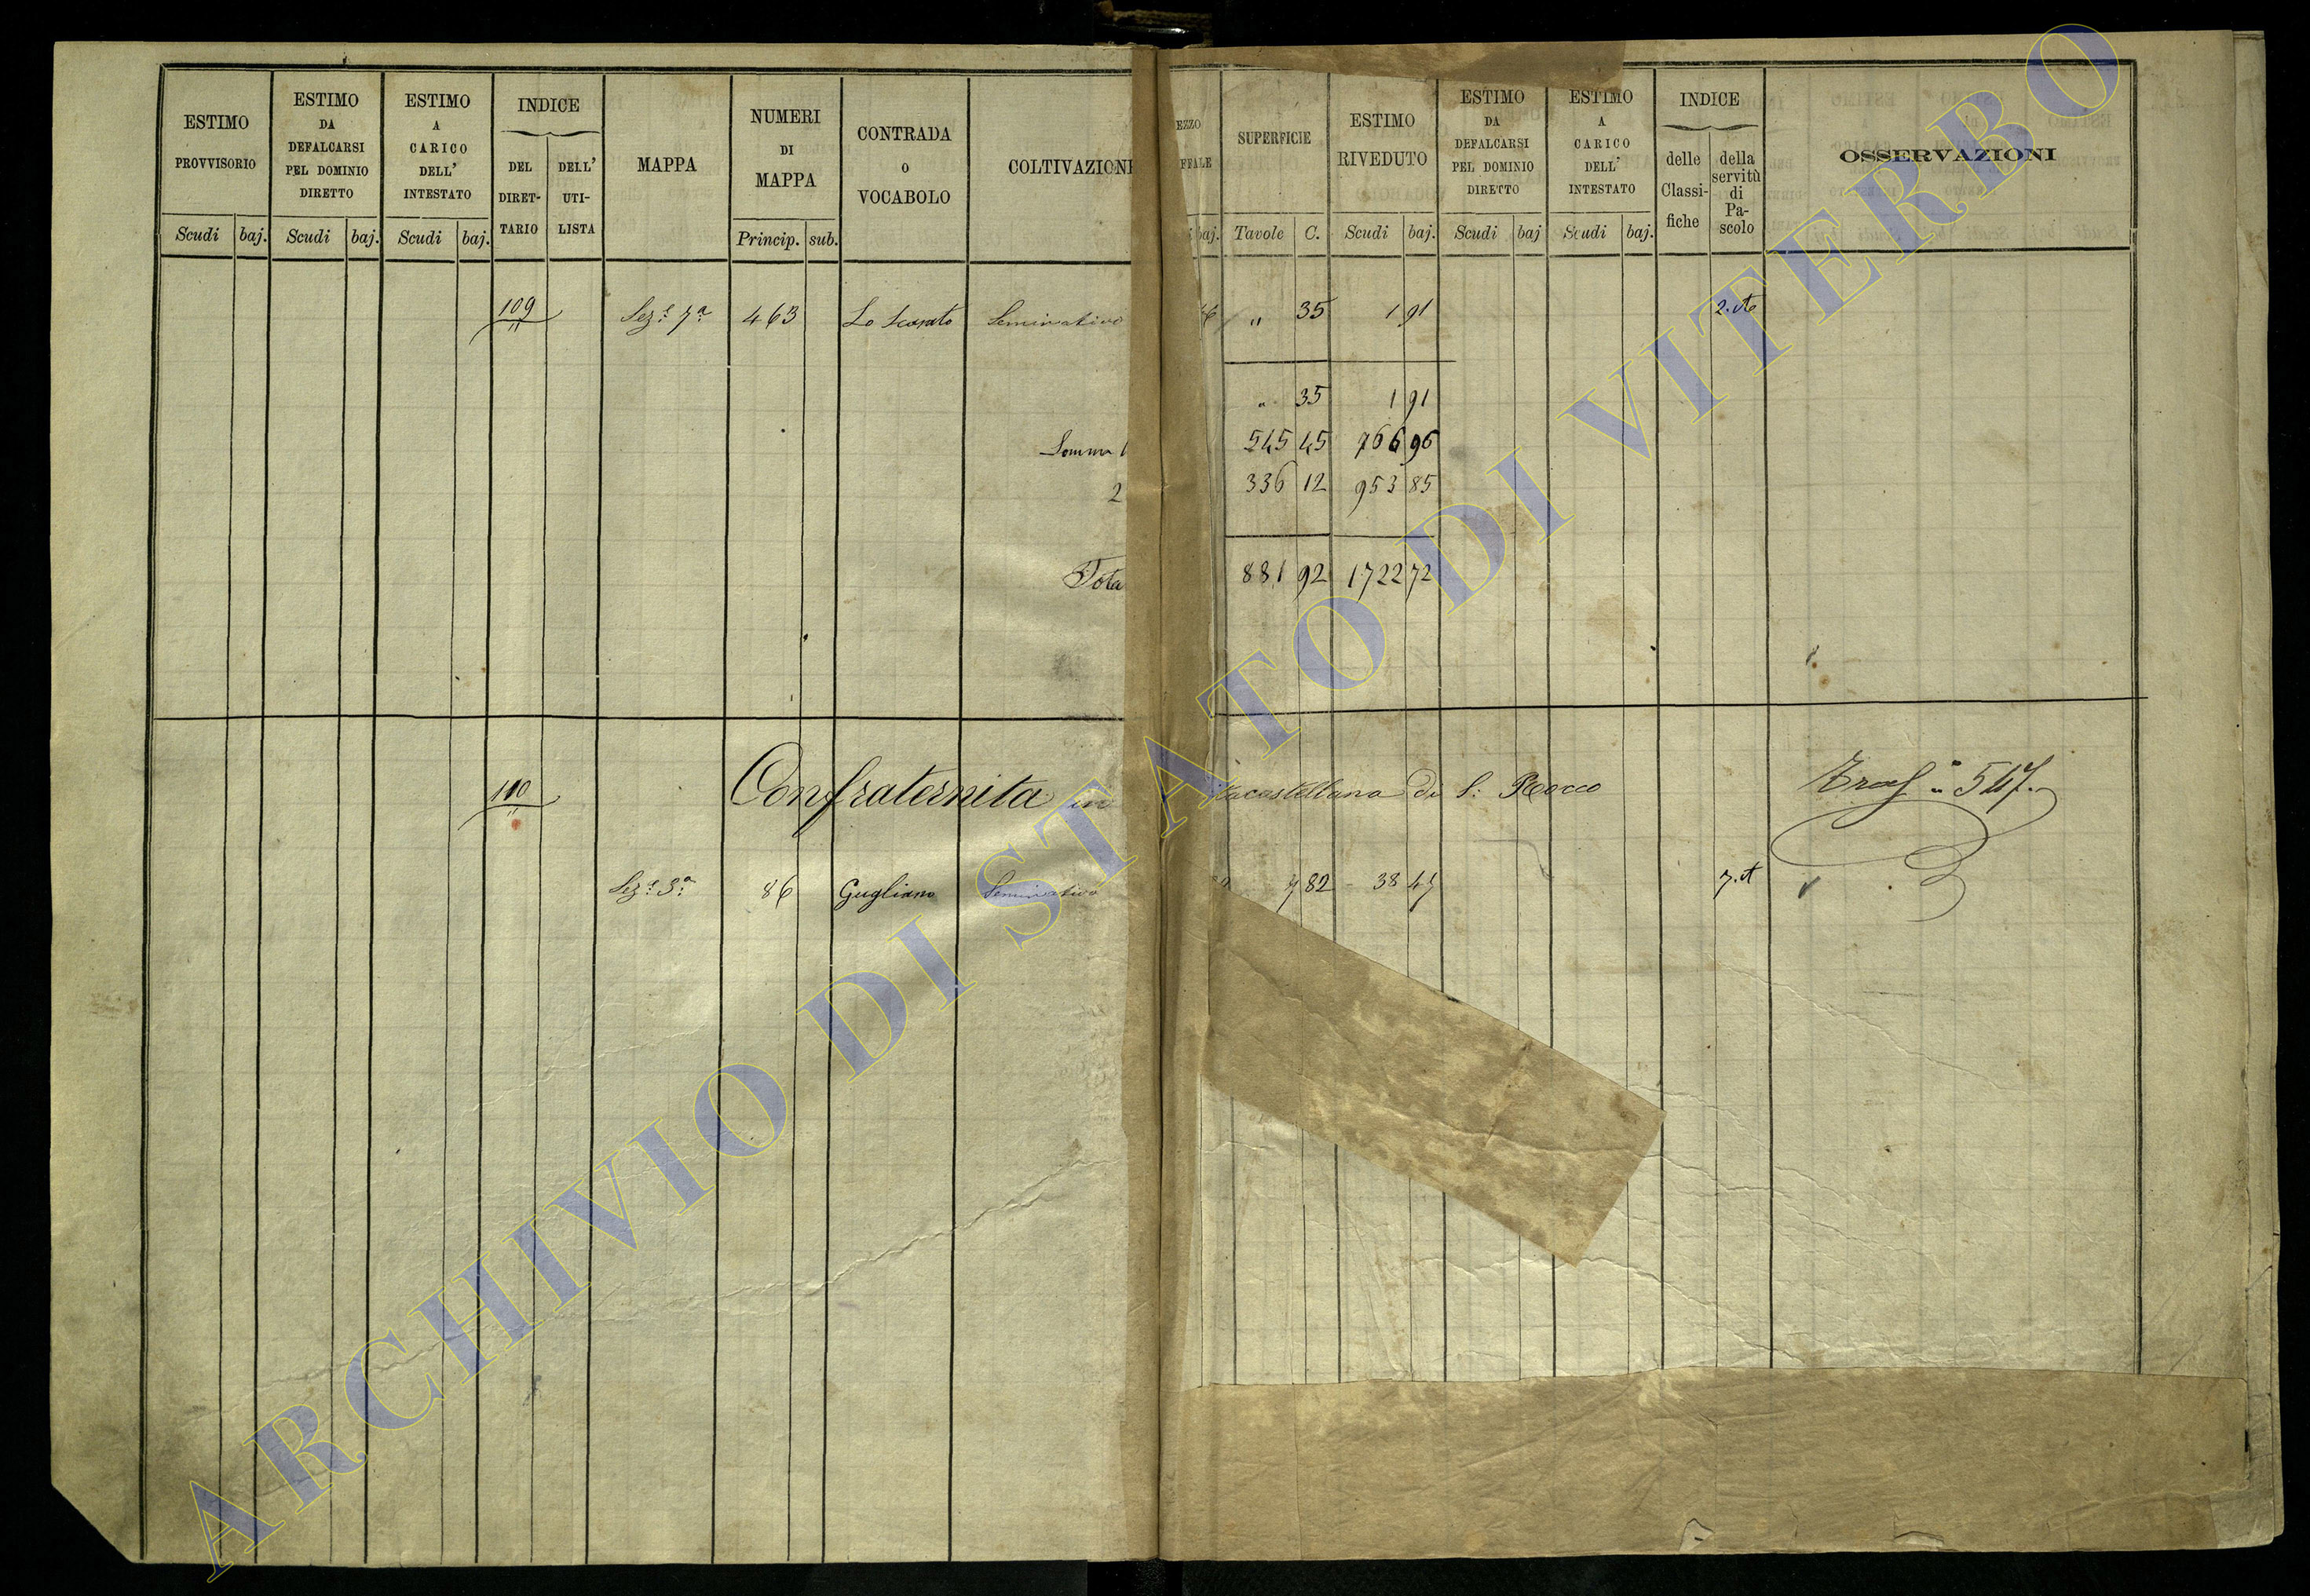 ESTIMO PROVVISORIO
Scudi baj.
ESTIMO DA DEFALCARSI PEL DOMINIO DIRETTO
Scudi baj.
ESTIMO A CARICO DELL' INTESTATO
Scudi baj.
INDICE
DEL DIRET-TARIO
DELL' UTI-LISTA
MAPPA
NUMERI DI MAPPA
Princip. sub.
CONTRADA O VOCABOLO
COLTIVAZIONE
EZZO
FFALE
baj.
SUPERFICIE
Tavole C.
ESTIMO RIVEDUTO
Scudi baj.
ESTIMO DA DEFALCARSI PEL DOMINIO DIRETTO
Scudi baj
ESTIMO A CARICO DELL' INTESTATO
Scudi baj.
INDICE
delle Classi-fiche
della servitù di Pa-scolo
OSSERVAZIONI
109 Sez.e 7a 463 Lo Seminativo " 35 1 91
" 35 1 91
Somma 545 45 766 96
2 336 12 953 85
Tota 881 92 1722 72
110 Confraternita in acastellana di S: Rocco Trasf " 547.
Sez.e 3a 86 Gugliano Seminativo 7 82 38 47
ARCHIVIO DI STATO DI VITERBO